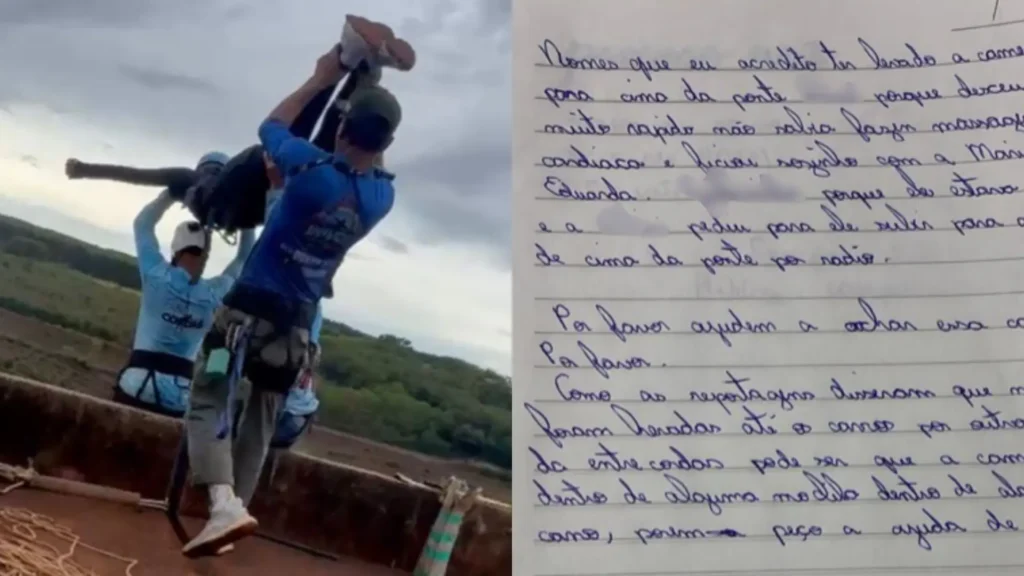 Nomes que eu acredito ter levado a came
para cima da ponte porque desceu
muito rapido não sabia fazer massag
cardiaca e ficou sozinho com a Mari
Eduarda. porque ele estava
e a pediu para ele subir para a
de cima da ponte por radio.
Por favor ajudem a achar essa ca
Por favor.
Como as reportagens disseram que m
foram levadas até o carro por outra
da entre cordas pode ser que a cam
dentro de alguma mochila dentro de al
carro, porem peço a ajuda de